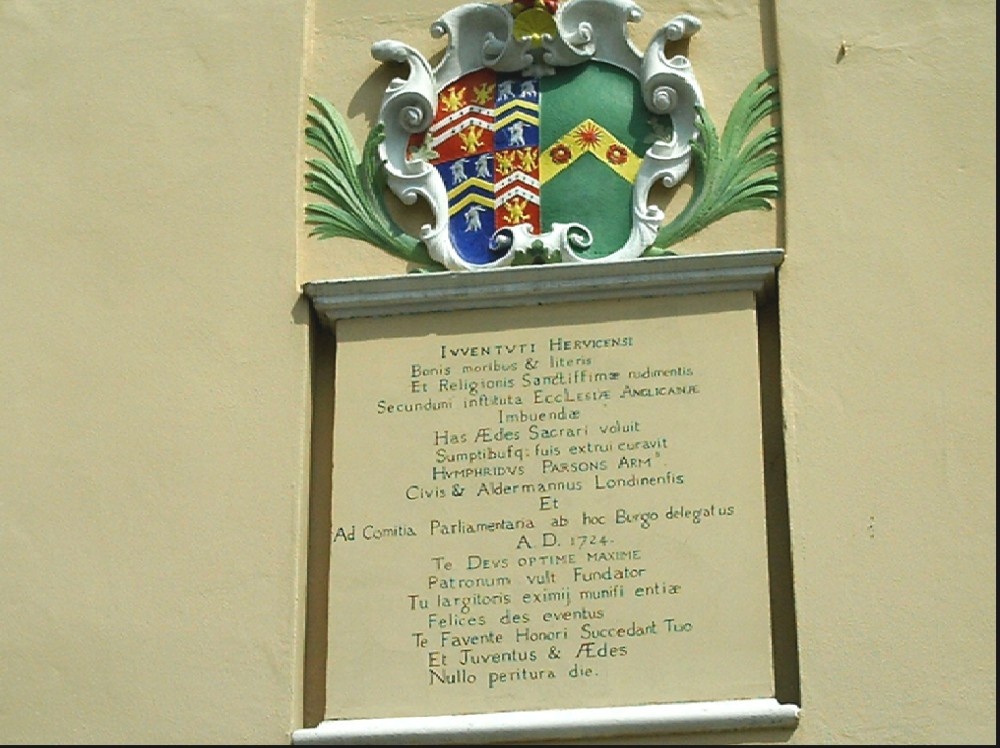 IVVENTVTI HERVICENSI
Bonis moribus & literis
Et Religionis Sanctissimæ rudimentis
Secundum instituta EccLESIÆ ANGLICANÆ
Imbuendæ
Has Ædes Sacrari voluit
Sumptibusq: suis extrui curavit
HVMPHRIDVS PARSONS ARM^s.
Civis & Aldermannus Londinensis
Et
Ad Comitia Parliamentaria ab hoc Burgo delegatus
A. D. 1724.
Te DEVS OPTIME MAXIME
Patronum vult Fundator
Tu largitoris eximij munifi entiæ
Felices des eventus
Te Favente Honori Succedant Tuo
Et Juventus & Ædes
Nullo peritura die.